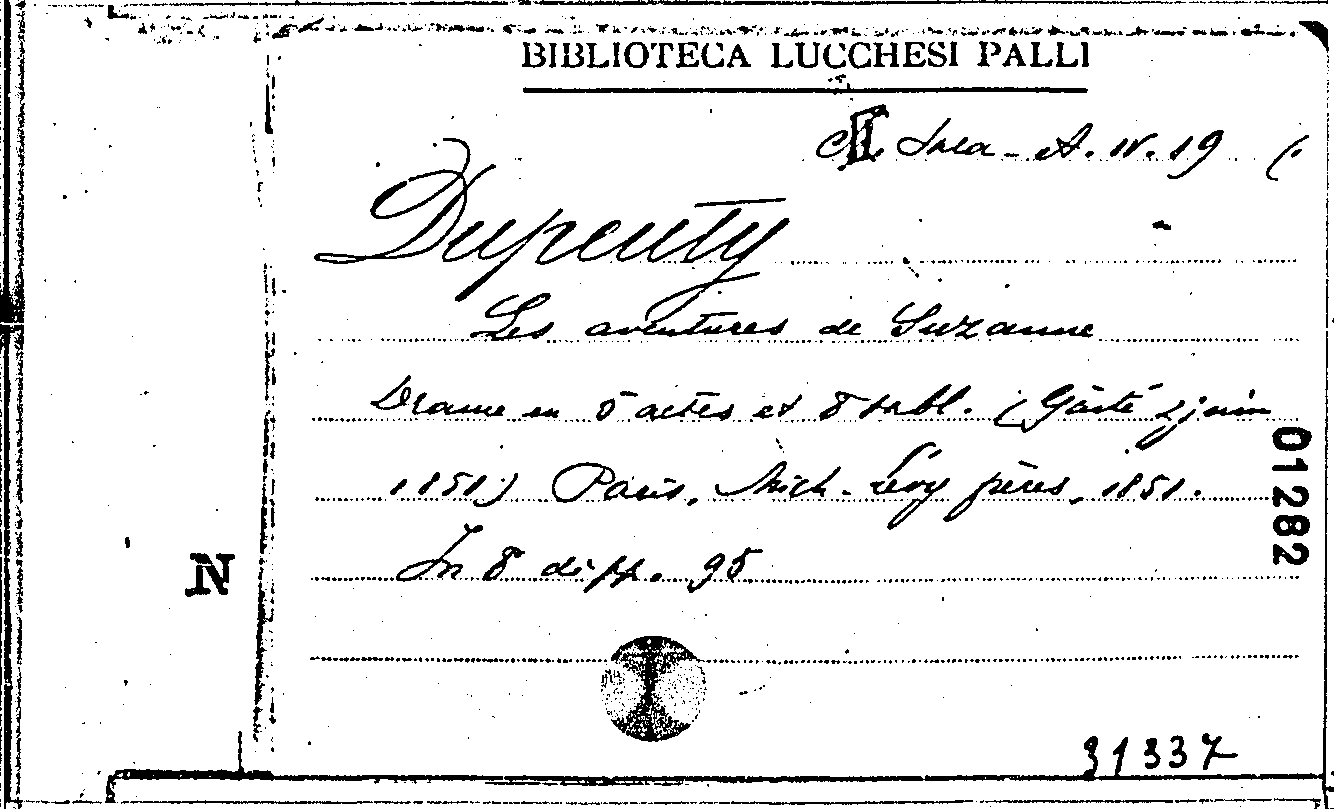 BIBLIOTECA LUCCHESI PALLI
Sala - A. IV. 19 (.
Dupeuty
Les aventures de Suzanne
Drame en 5 actes et 8 tabl. (Gaité 2 juin
1851) Paris, Mich. Lévy frères, 1851.
In 8 di pp. 95
01282
N
31337